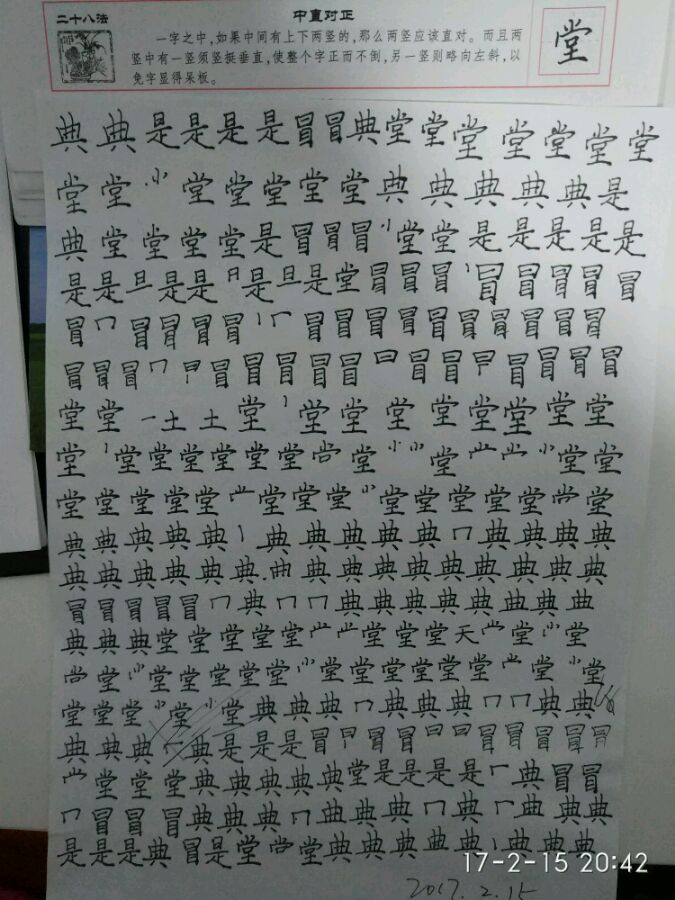 二十八法
中直对正
一字之中，如果中间有上下两竖的，那么两竖应该直对。而且两
竖中有一竖须竖挺垂直，使整个字正而不倒，另一竖则略向左斜，以
免字显得呆板。
堂
典典是是是是冒冒典堂堂堂堂堂堂堂
堂堂小堂堂堂堂堂典典典典典是
典堂堂堂堂是冒冒冒堂堂是是是是是
是是旦是是日是旦是堂冒冒冒冒冒冒冒冒
冒冂冒冒冒冒冒冒冒冒冒冒冒冒冒冒
冒冒冒冂冒冒冒冒冒冒冒冒冒冒冒冒冒
堂堂一土土堂堂堂堂堂堂堂堂堂
堂堂堂堂堂堂堂尚堂小小堂堂堂
堂堂堂堂堂堂堂堂小堂堂堂堂堂尚堂
典典典典典典典典典典典冂典典典典
典典典典典典曲典典典典典典典典典
冒冒冒冒冒冂典冂冂典典典典典典曲
典典典堂堂堂堂堂堂堂堂天堂小堂
尚堂小堂堂堂堂堂小堂堂堂堂堂堂堂小堂
堂堂堂小堂小堂典典典冂典典典冂冂典典
典典典典是是是冒冒冒冒冒冒冒冒
堂堂堂典典典典典堂是是是是典冒冒
冂冒冒冒典典典冂典典典冂典曲典典
是是是典冒是堂尚堂典典典典典典典典
17-2-15 20:42
2017.2.15